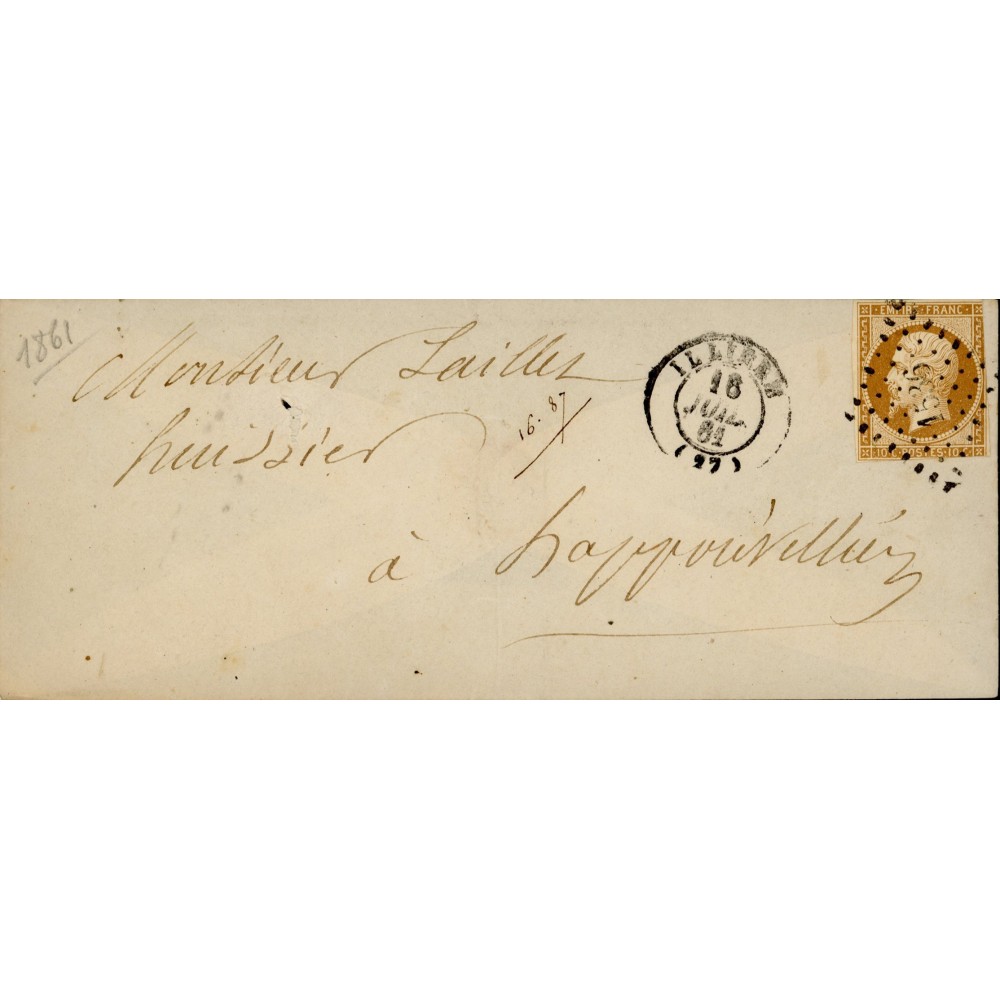 1861
Monsieur Laillet
huissier
à
16. 87
ILLIERS
16
JUIL.
61
(27)
EMPIRE FRANC.
1535
10 C. POSTES 10 C.